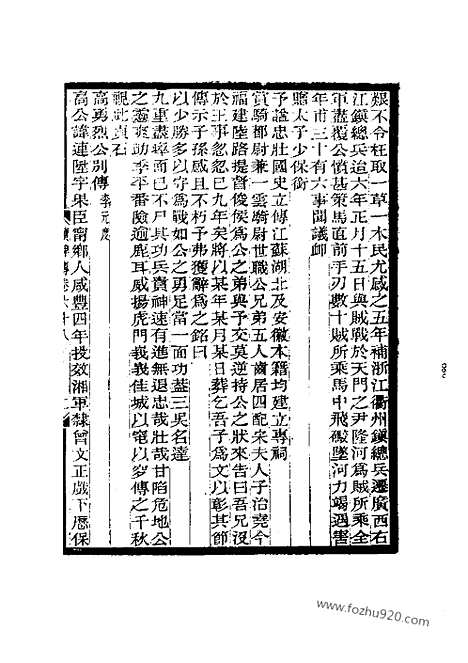 娯不令枉取一草一木民尤感之五年補浙江衢州鎭總兵遷廣西右
江鎭總兵追六年正月十五日與賊戰於天門之尹隆河爲賊所乘全
軍盡覆公憤甚策馬直前手刃數十賊所乘馬中飛礮墜河力竭遇害
年甫三十有六事聞議卹
贈太子少保銜
予諡忠壯國史立傳江蘇湖北及安徽本籍均建立專祠
賞騎都尉兼一雲騎尉世職公兄弟五人齒居四配朱夫人子治堯今
福建陸路提督俊侯爲公之弟與予交莫逆持公之狀來告曰吾兄沒
於王事忽忽已九年矣將以某年某月某日葬乞吾子爲文以彰其節
傳示子孫感且不朽予弗獲辭爲之銘曰
以少勝多以守爲戰如公之勇足當一面功蓋三吳名達
九重盡瘁而已不尸其功兵貴神速有進無退忠哉壯哉甘陷危地公
之靈爽助季平番險逾鹿耳威揚虎門峩峩佳城以窀以穸傳之千秋
觀此貞石
高勇烈公別傳 李元度
高公諱連陞字果臣甯鄉人咸豐四年投效湘軍隸曾文正戲下歷保
續碑傳卷六十八
www.fozhu920.com